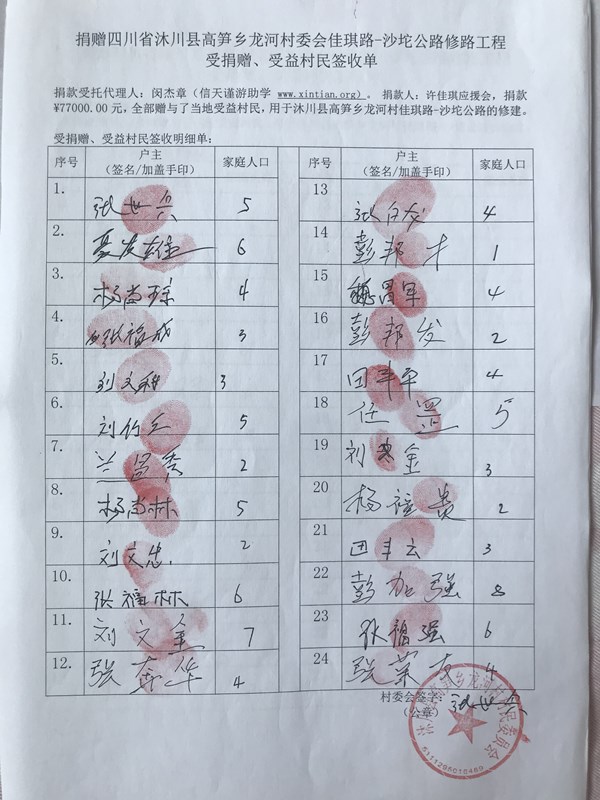 捐赠四川省沐川县高笋乡龙河村委会佳琪路-沙坨公路修路工程
受捐赠、受益村民签收单
捐款受托代理人：闵杰章（信天谨游助学 www.xintian.org）。 捐款人：许佳琪应援会，捐款
¥77000.00元，全部赠与了当地受益村民，用于沐川县高笋乡龙河村佳琪路-沙坨公路的修建。
受捐赠、受益村民签收明细单：
序号 户主（签名/加盖手印） 家庭人口
1. 张世兵 5
2. 6
3. 杨尚琼 4
4. 张福成 3
5. 刘文 3
6. 刘竹 5
7. 兰昌秀 2
8. 杨尚林 5
9. 刘文忠 2
10. 张福林 6
11. 刘文金 7
12. 张奔华 4
序号 户主（签名/加盖手印） 家庭人口
13 张白友 4
14 彭邦才 1
15 昌军 4
16 彭邦发 2
17 田丰平 4
18 任 5
19 刘 金 3
20 杨福贵 2
21 田丰云 3
22 彭加强 8
23 张福强 6
24 张荣友 4
村委会签字：张世兵
（公章）
沐川县高笋乡龙河村村民委员会